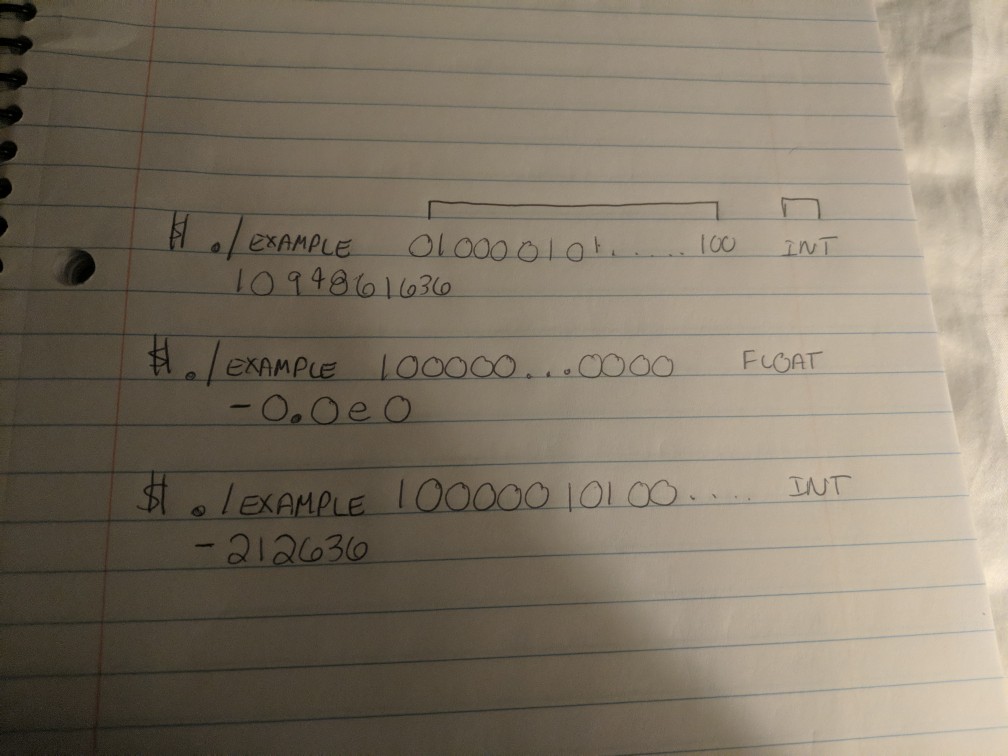 $ ./EXAMPLE 010000101......100 INT
1094861636
$ ./EXAMPLE 100000...0000 FLOAT
-0.0e0
$ ./EXAMPLE 10000010100.... INT
-212636